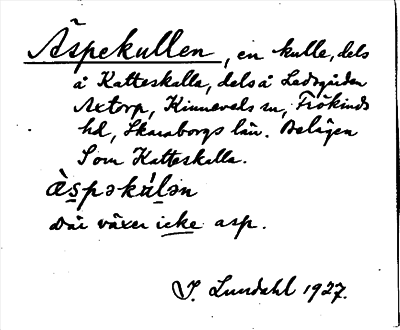 Äspekullen, en kulle, dels
å Katteskalla, dels å Ladugården
Axtorp, Kinneveds sn, Frökinds
hd, Skaraborgs län. Belägen
som Katteskalla.
ä̀s̱pəkúḻən
Där växer icke asp.
J. Lundahl 1927.